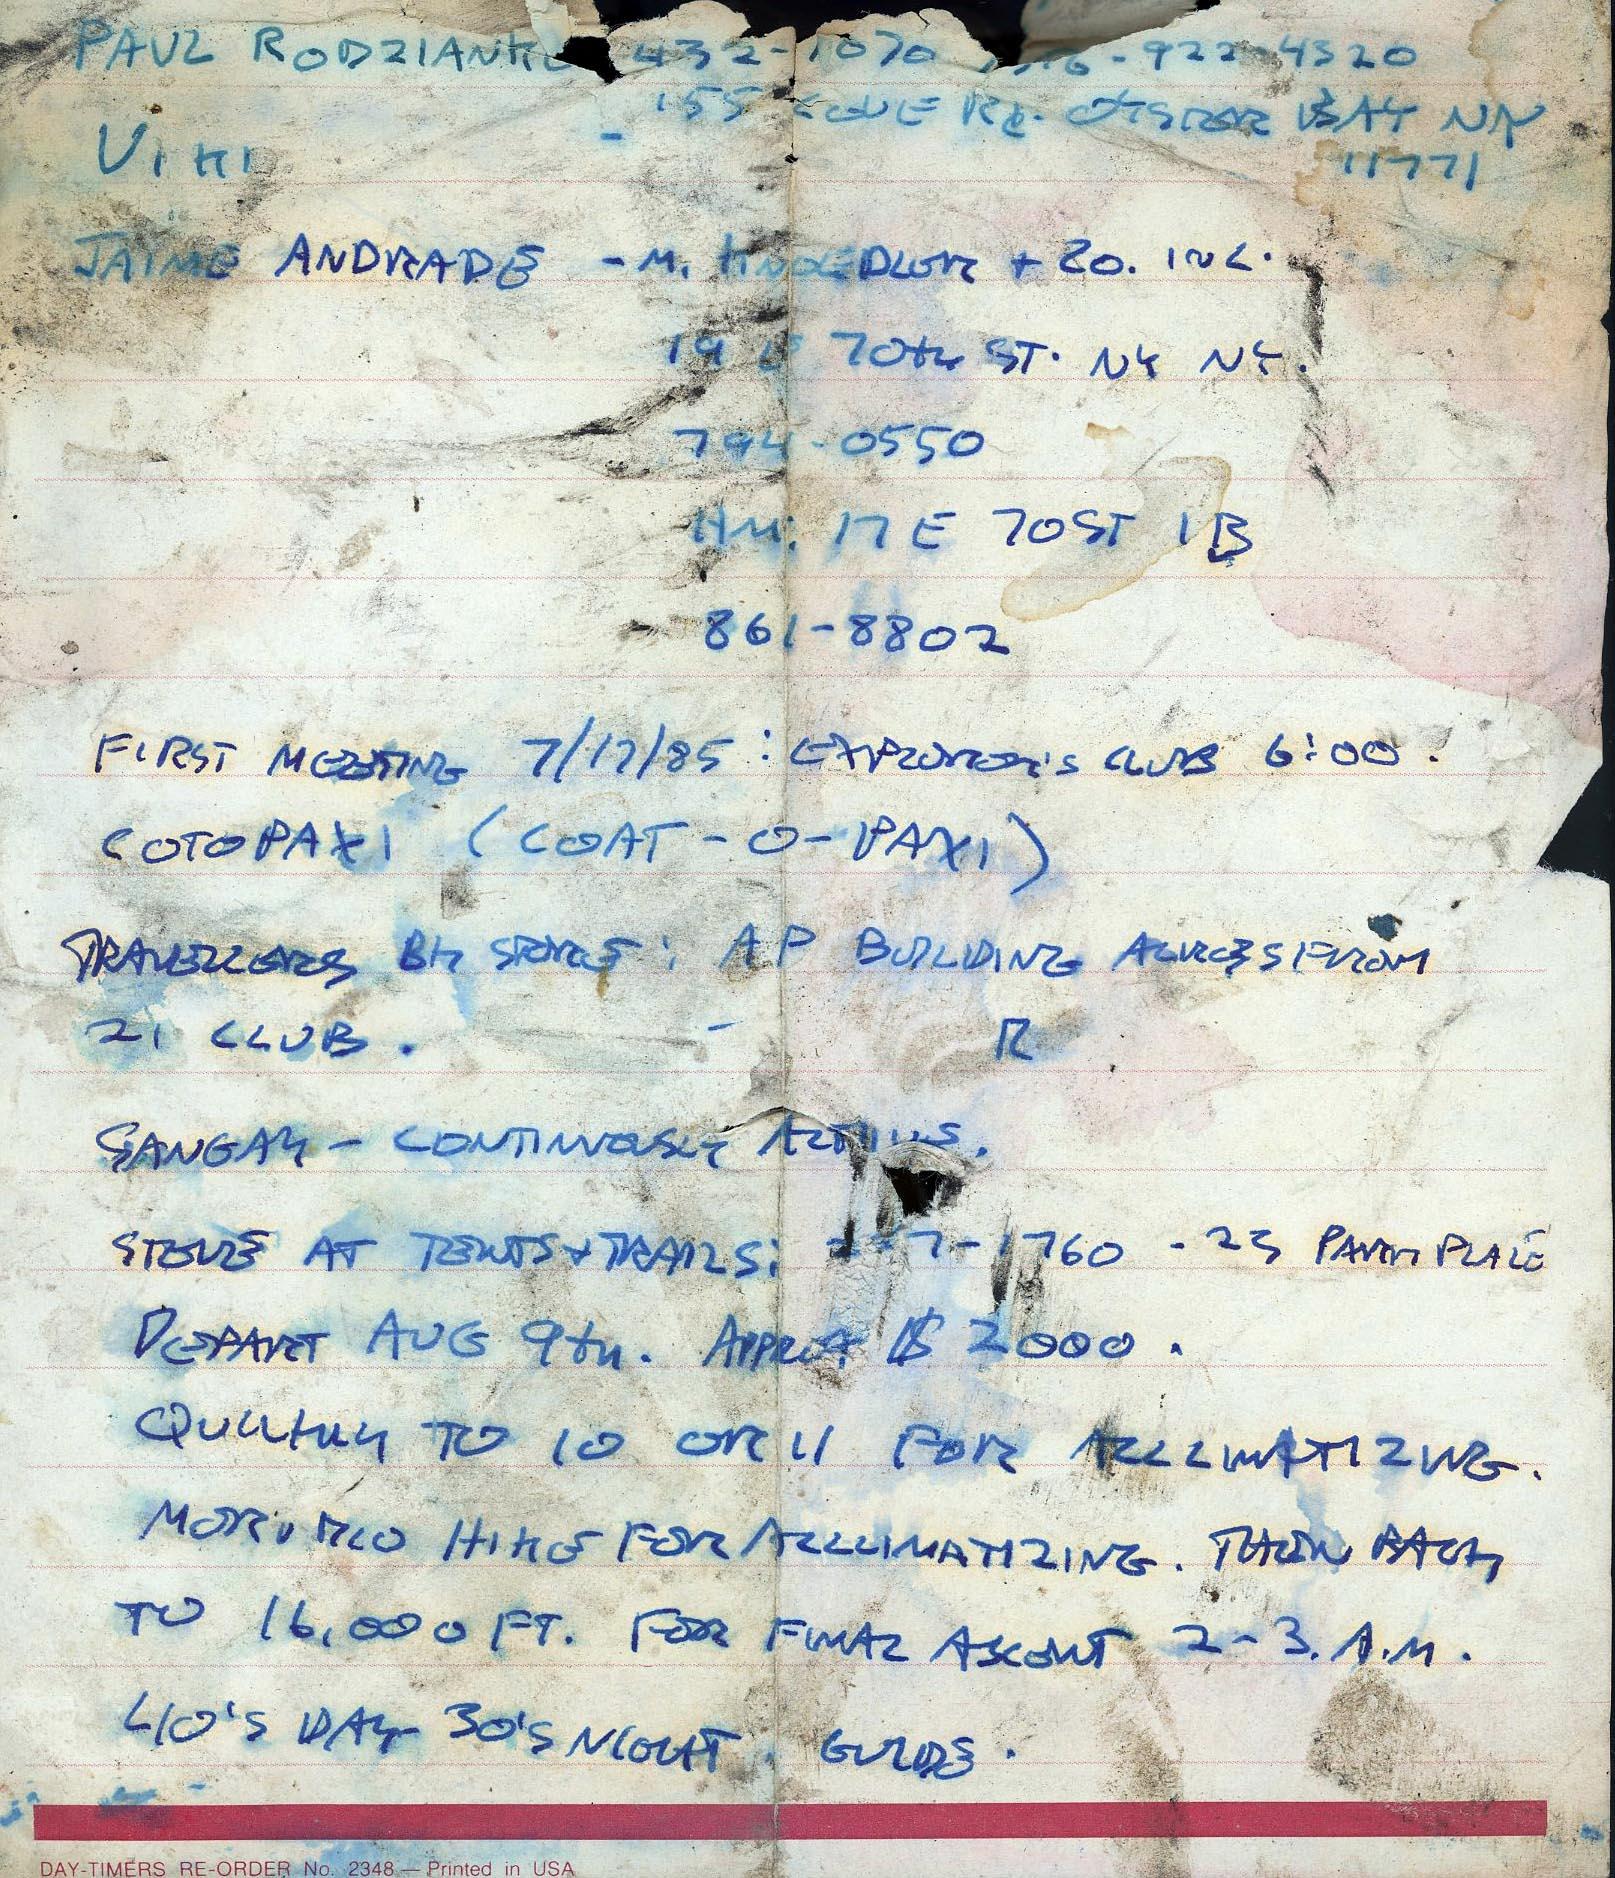 PAUL RODZIANKO 432-1070 516-922-4520
155 COVE RD. OYSTER BAY NY
VIKI 11771
JAIME ANDRADE - M. KNOEDLER + CO. INC.
19 E 70th ST. NY NY.
794-0550
HM: 17 E 70 ST 1B
861-8802
FIRST MEETING 7/17/85: EXPLORER'S CLUB 6:00.
COTOPAXI (COAT-O-PAXI)
TRAVELLERS BK STORE: AP BUILDING ACROSS FROM
21 CLUB. - R
SANGAY - CONTINUOUSLY ACTIVE.
STEVE AT TENTS + TRAILS: 7-1760 - 23 PARK PLACE
DEPART AUG 9th. APPROX $ 2000.
QUICKLY TO 10 OR 11 FOR ACCLIMATIZING.
HIKE FOR ACCLIMATIZING. THEN BACK
TO 16,000 FT. FOR FINAL ASCENT 2-3. A.M.
40'S DAY 30'S NIGHT. GUIDE.
DAY-TIMERS RE-ORDER No. 2348 — Printed in USA